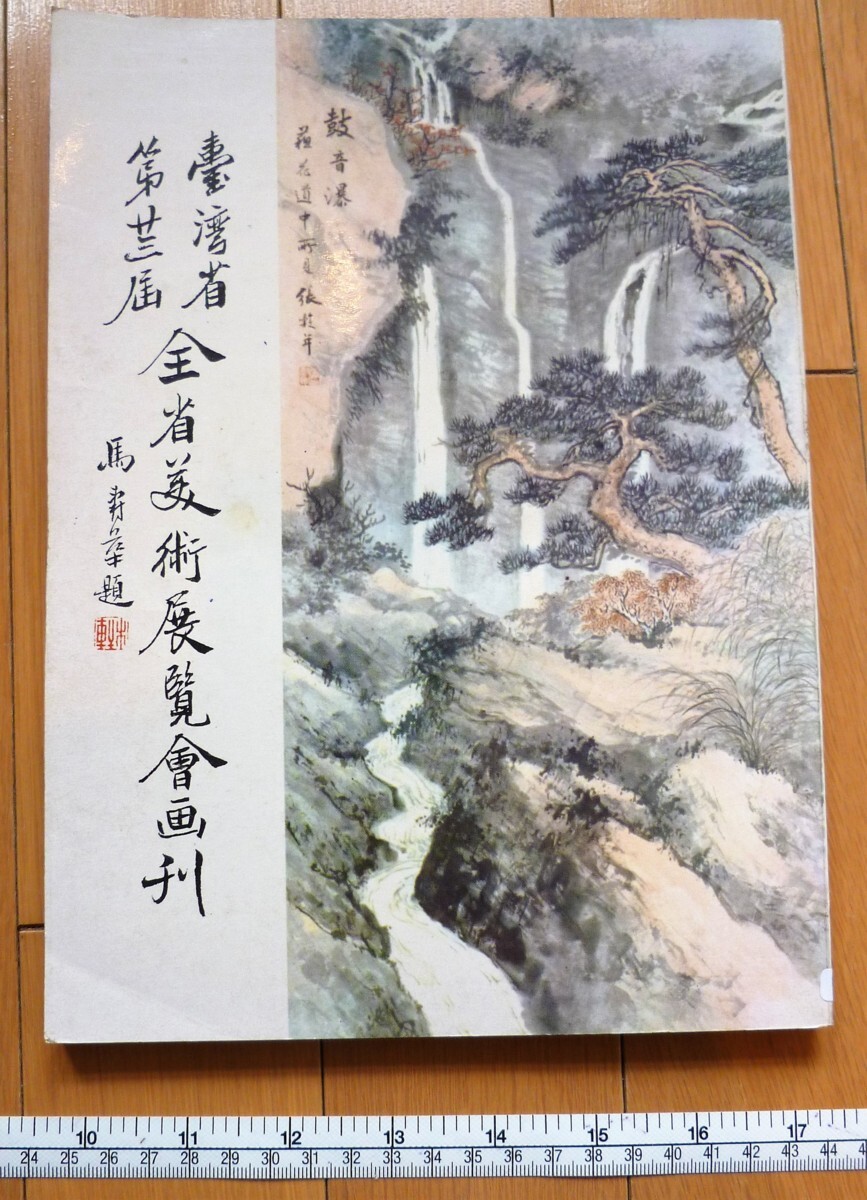 臺灣省
第廿三届
全省美術展覽會画刊
馬壽華題
鼓音瀑
蘓花道中所見 張穀年
10 11 12 13 14 15 16 17
24 25 26 27 28 29 30 31 32 33 34 35 36 37 38 39 40 41 42 43 44